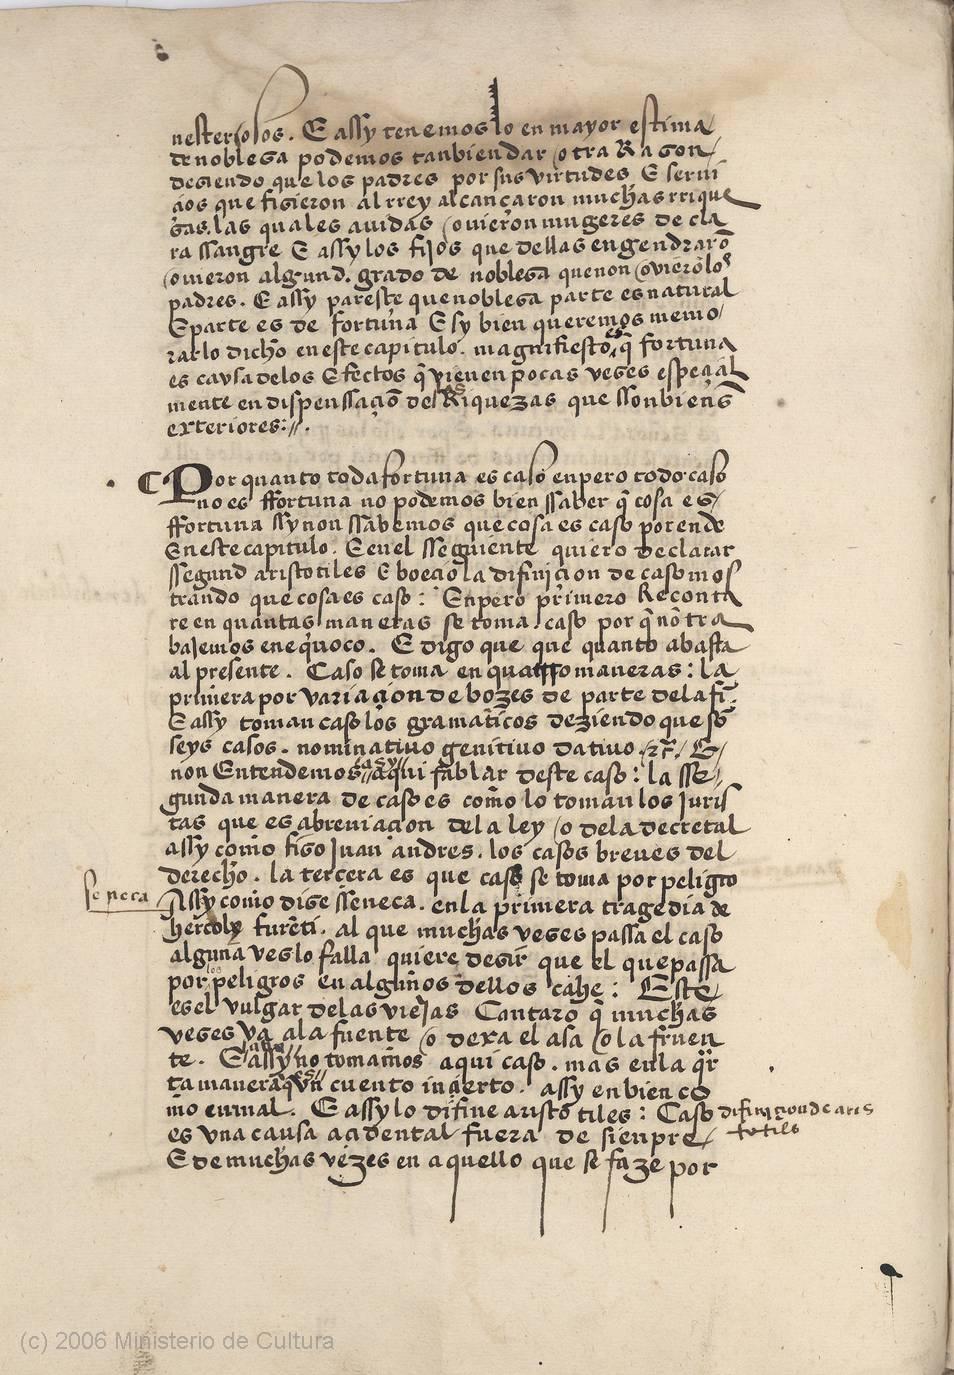 nesterosos. E assy tenemoslo en mayor estima
de noblesa podemos tanbien dar otra Rason
desiendo que los padres por sus virtudes E serui
çios que fisieron al rrey alcançaron muchas rrique
sas. las quales auidas ouieron mugeres de cla
ra ssangre E assy los fijos que dellas engendrarõ
ouieron algund. grado de noblesa que non ouierõ los
padres. E assy pareste que noblesa parte es natural
E parte es de fortuna E sy bien queremos memo
rar lo dicho en este capitulo. magnifiesto es q̃ fortuna
es cavsa delos Efectos q̃ vienen pocas veses espeçial
mente en dispenssaçiõ de las Riquezas que sson bienẽs
exteriores://.
Por quanto toda fortuna es caso enpero todo caso
no es ffortuna no podemos bien ssaber q̃ cosa es
ffortuna ssy non ssabemos que cosa es caso por ende
En este capitulo. E en el sseguiente quiero declarar
ssegund aristotiles E boecio la difiniçion de caso mos
trando que cosa es caso: Enpero primero Reconta
re en quantas maneras se toma. caso por q̃ nõ tra
bajemos en eq̃uoco. E digo que que quanto abasta
al presente. Caso se toma en quatro maneras: la
primera por variaçion de bozes de parte dela fiñ.
E assy toman caso los gramaticos deziendo que sõ
seys casos. nominatiuo genitiuo datiuo. &c̃. E
non Entendemos assy aqui fablar deste caso: la sse
gunda manera de caso es como lo toman los Juris
tas que es abreuiaçion dela ley o dela decretal
assy como fiso Juan andres. los casos breues del
derecho. la terçera es que caso se toma por peligro
seneca
Assy como dise sseneca. en la primera tragedia de
hercoles furẽti. al que muchas veses passa el caso
alguna ves lo falla quiere desir que el que passa
por los peligros en algunos dellos cahe: Este
es el vulgar delas viejas Cantaro q̃ muchas
veses va ala fuente o dexa el asa o la fruen
te. E assy no tomamos aqui caso. mas en la q̃r
ta manera que es vn cuento inçierto. assy en bien co
mo en mal. E assy lo difine aristotiles: Caso
difiniçion de aris
totiles
es vna causa acidental fuera de sienpre
E de muchas vezes en aquello que se faze por
(c) 2006 Ministerio de Cultura